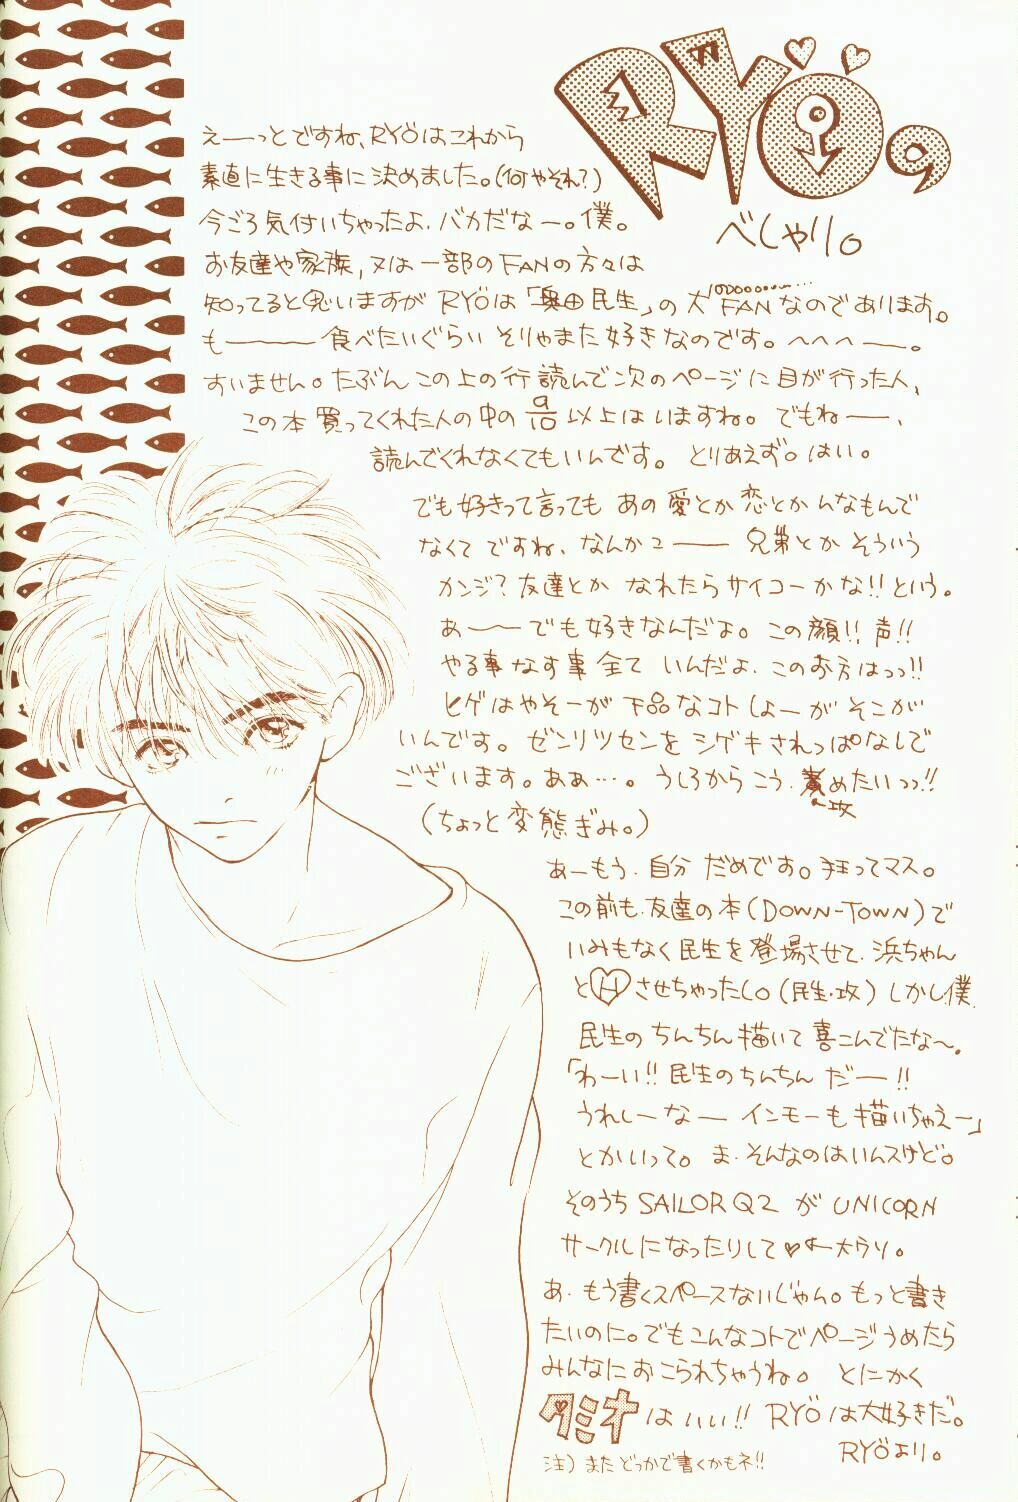 RYÖの
べしゃり。
えーっとですね、RYÖはこれから
素直に生きる事に決めました。(何やそれ?)
今ごろ気付いちゃったよ、バカだなー。僕。
お友達や家族、又は一部のFANの方々は
知ってると思いますがRYÖは「奥田民生」の大FANなのであります。
も――― 食べたいぐらい そりゃまた好きなのです。へへへー。
すいません。たぶん この上の行 読んで次のページに目が行った人、
この本買ってくれた人の中の9/10以上はいますね。でもねー、
読んでくれなくてもいんです。とりあえず。はい。
でも好きって言っても あの愛とか恋とかんなもんで
なくてですね、なんかこー― 兄弟とかそういう
カンジ?友達とか なれたらサイコーかな!!という。
あー〜でも好きなんだよ。この顔!!声!!
やる事なす事全ていんだよ、このお方はっっ!!
ヒゲはやそーが下品なコトしよーがそこが
いんです。ゼンリツセンをシゲキされっぱなしで
ございます。あぁ…。うしろからこう、責めたいっっ!!
攻
(ちょっと変態ぎみ。)
あーもう、自分だめです。狂ってマス。
この前も、友達の本(DOWN-TOWN)で
いみもなく民生を登場させて、浜ちゃん
とHさせちゃったし。(民生・攻)しかし僕、
民生のちんちん描いて喜こんでたな〜。
「わーい!!民生のちんちんだー!!
うれしーなー インモーも描いちゃえー」
とかいって。ま、そんなのはいんスけど。
そのうちSAILOR Q2がUNICORN
サークルになったりして♥←大ウソ。
あ、もう書くスペースないじゃん。もっと書き
たいのに。でもこんなコトでページうめたら
みんなにおこられちゃうね。とにかく
タミオはいい!!RYÖは大好きだ。
RYÖより。
注)またどっかで書くかもネ!!